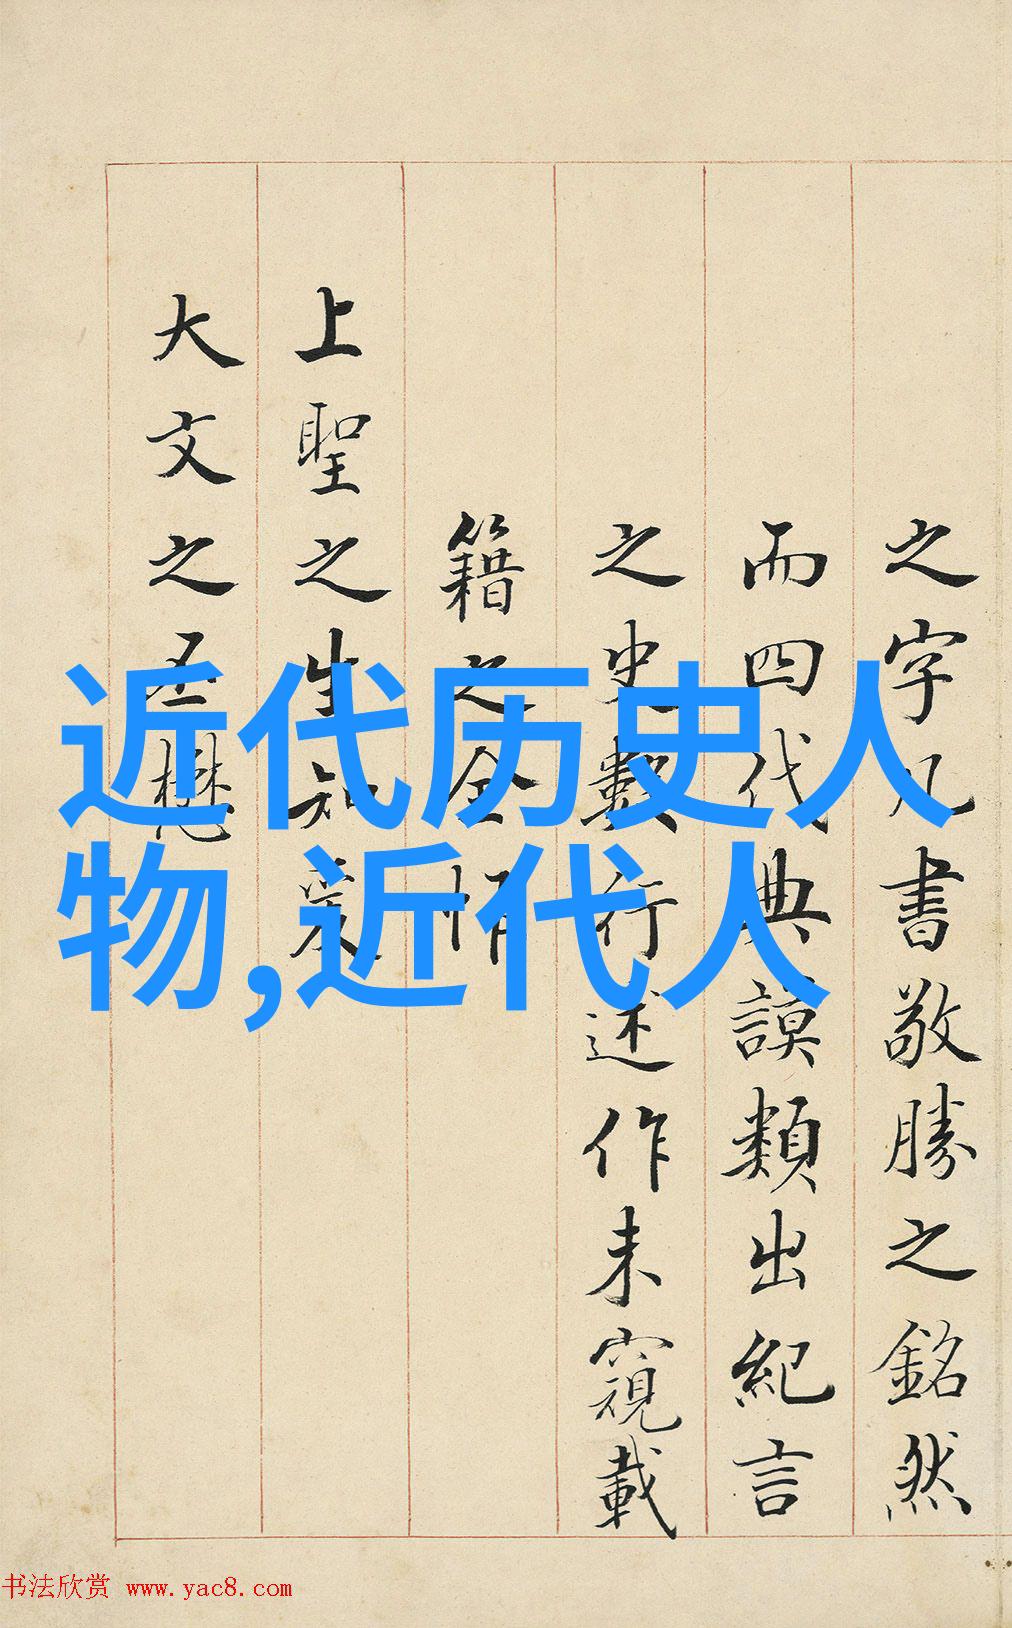 之字凡書敬勝之銘然
而四代典謨類出紀言
之史數行述作未窺載
籍之全
上聖之生知
大文之丕懋
近代历史人
物,近代人
书法欣赏 www.yac8.com